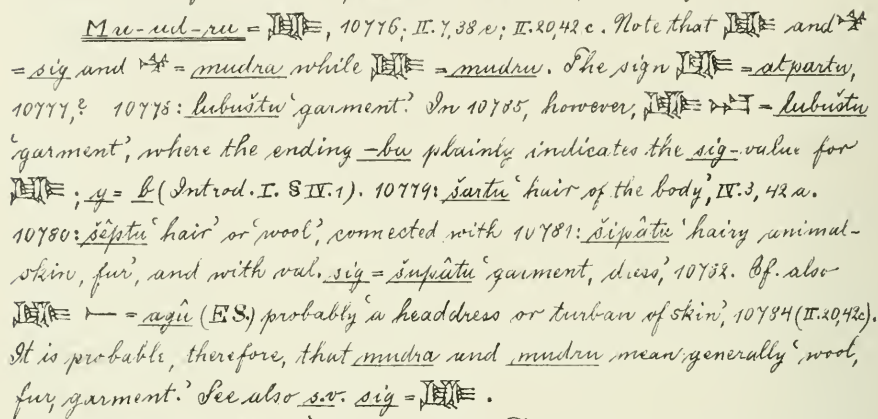 Mu-ud-ru = 𒋠, 10776; II. 7, 38 e; II. 20, 42 c. Note that 𒋠 and
= sig and = mudra while 𒋠 = mudru. The sign 𒋠 = atpartu,
10777,? 10778: lubuštu 'garment'. In 10785, however, 𒋠 = lubuštu
'garment', where the ending -bu plainly indicates the sig-value for
𒋠; g = b (Introd. I. § IV. 1). 10779: šartu 'hair of the body', IV. 3, 42 a.
10780: šêptu 'hair' or 'wool', connected with 10781: šipâtu 'hairy animal-
skin, fur', and with val. sig = šupâtu 'garment, dress', 10782. Cf. also
𒋠 𒀸 = agû (ES.) probably 'a headdress or turban of skin', 10784 (II. 20, 42c).
It is probable, therefore, that mudra and mudru mean generally 'wool,
fur, garment.' See also s.v. sig = 𒋠.